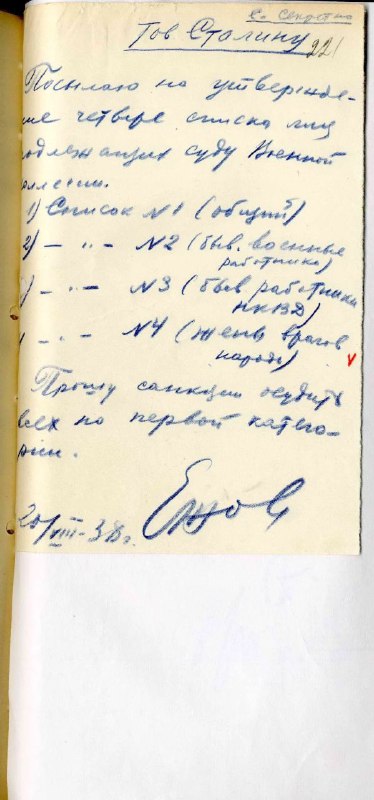 С. Секретно
Тов Сталину
221
Посылаю на утвержде-
ние четыре списка лиц
подлежащих суду Военной
коллегии.
1) Список №1 (общий)
2) – " – №2 (быв. военные
работники)
) – " – №3 (быв работники
НКВД)
) – " – №4 (жены врагов
народа)
Прошу санкции осудить
всех по первой катего-
рии.
20/VIII-38г. Ежов